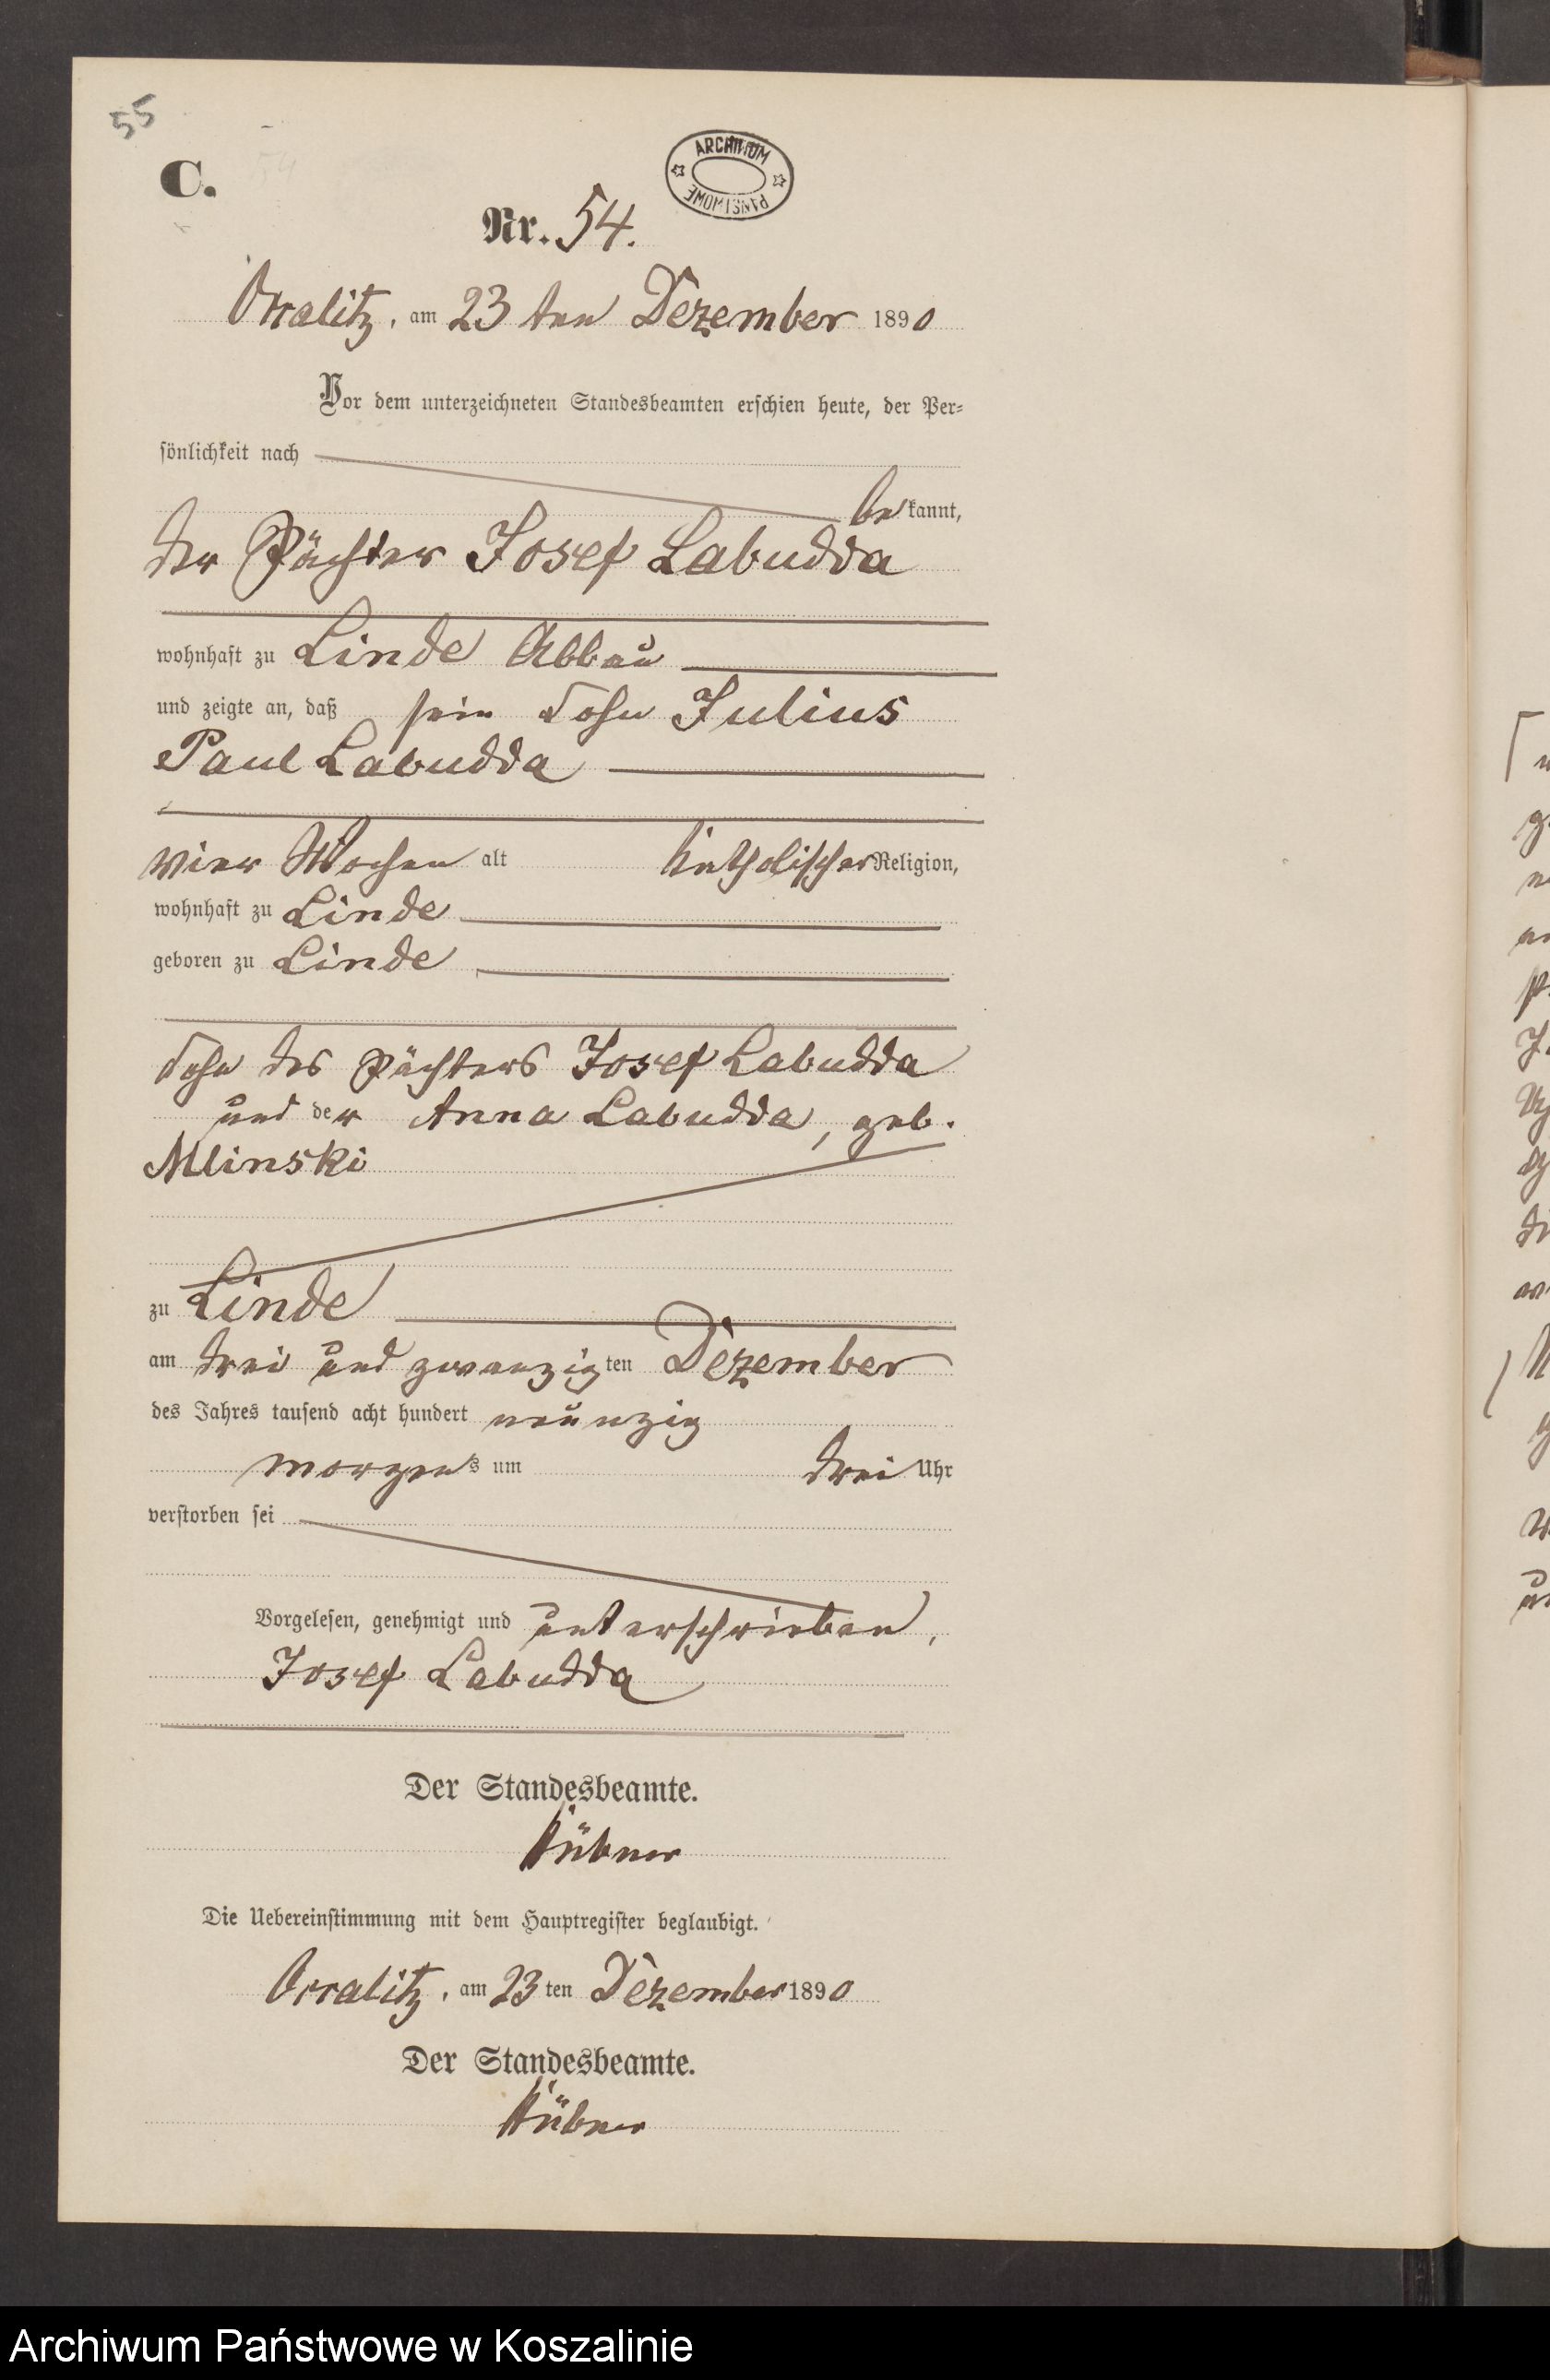 55
C.
ARCHIWUM
PAŃSTWOWE
Nr. 54.
Occalitz, am 23 ten Dezember 1890
Vor dem unterzeichneten Standesbeamten erschien heute, der Per-
sönlichkeit nach
bekannt,
der Pächter Josef Labudda
wohnhaft zu Linde Abbau
und zeigte an, daß sein Sohn Julius
Paul Labudda
vier Wochen alt katholischer Religion,
wohnhaft zu Linde
geboren zu Linde
Sohn des Pächters Josef Labudda
und der Anna Labudda, geb.
Mlinski
zu Linde
am drei und zwanzigten Dezember
des Jahres tausend acht hundert neunzig
morgens um drei Uhr
verstorben sei
Vorgelesen, genehmigt und unterschrieben,
Josef Labudda
Der Standesbeamte.
Hübner
Die Uebereinstimmung mit dem Hauptregister beglaubigt.
Occalitz, am 23 ten Dezember 1890
Der Standesbeamte.
Hübner
Archiwum Państwowe w Koszalinie